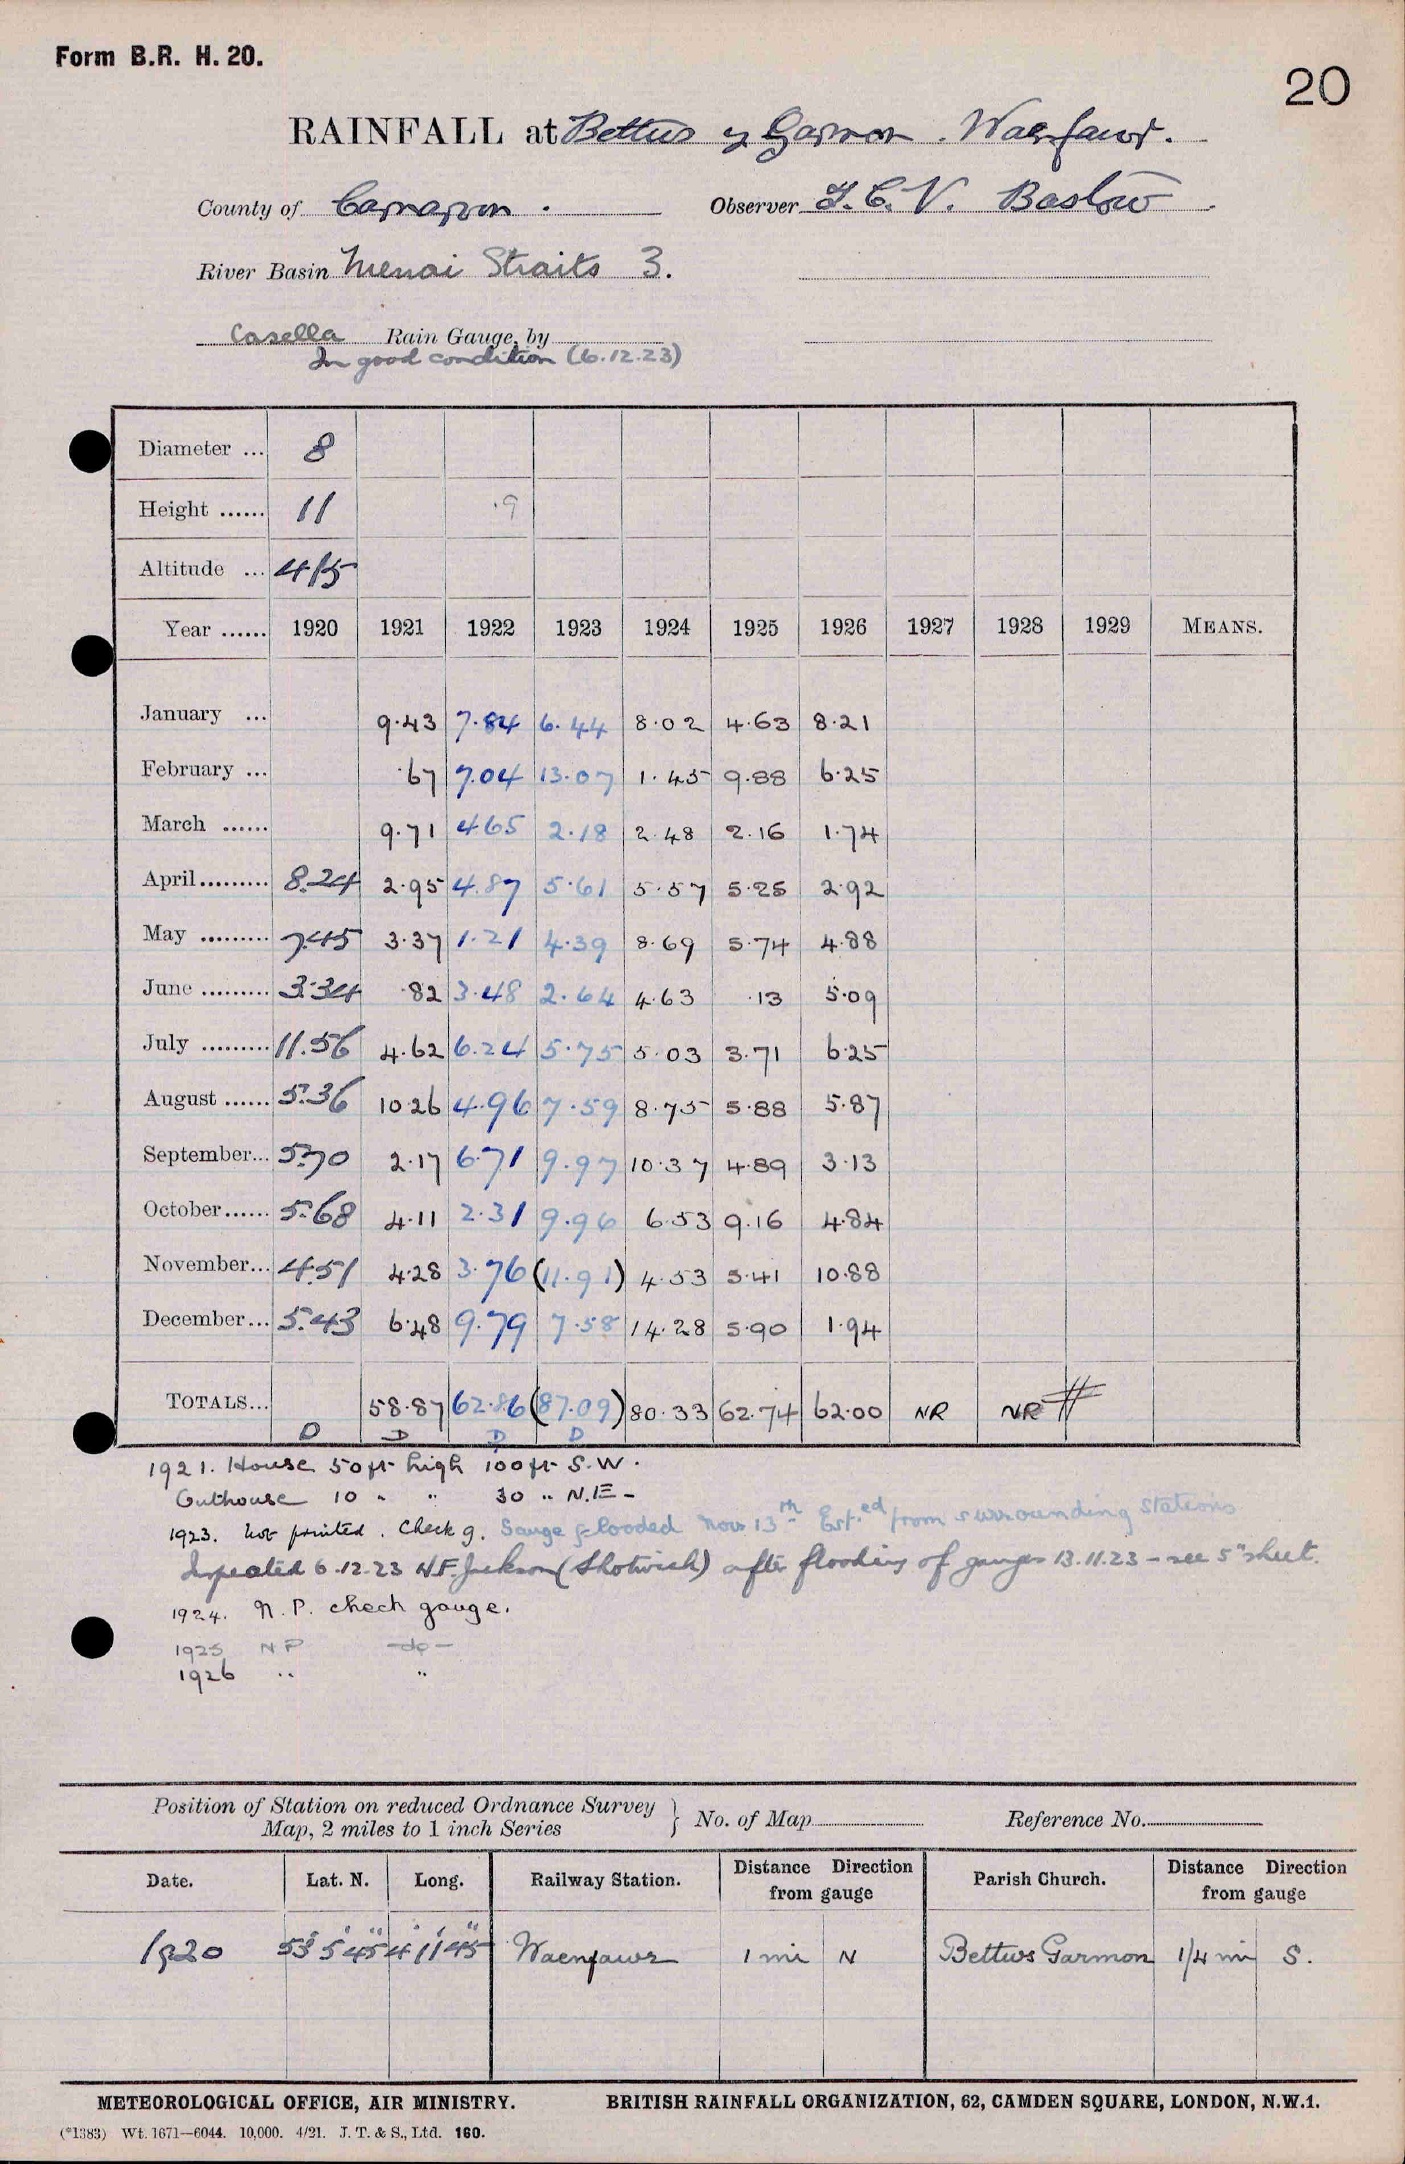 Form B.R. H. 20.
20
RAINFALL at Bettws y Garmon. Waenfawr.
County of Carnarvon. Observer
River Basin Menai Straits 3.
Casella Rain Gauge, by
In good condition (6.12.23)
Diameter ... 8
Height ...... 11 .9
Altitude ... 415
Year ...... 1920 1921 1922 1923 1924 1925 1926 1927 1928 1929 MEANS.
January ... 9.43 7.84 6.44 8.02 4.63 8.21
February ... .67 7.04 13.07 1.45 9.88 6.25
March ...... 9.71 4.65 2.18 2.48 2.16 1.74
April......... 8.24 2.95 4.87 5.61 5.57 5.25 2.92
May ......... 7.45 3.37 1.21 4.39 8.69 5.74 4.88
June ......... 3.34 .82 3.48 2.64 4.63 .13 5.09
July ......... 11.56 4.62 6.24 5.75 5.03 3.71 6.25
August ...... 5.36 10.26 4.96 7.59 8.75 5.88 5.87
September... 5.70 2.17 6.71 9.97 10.37 4.89 3.13
October...... 5.68 4.11 2.31 9.96 6.53 9.16 4.84
November... 4.51 4.28 3.76 (11.91) 4.53 5.41 10.88
December... 5.43 6.48 9.79 7.58 14.28 5.90 1.94
TOTALS... 58.87 62.86 (87.09) 80.33 62.74 62.00 NR NR
D D D D
1921. House 50 ft high 100 ft S.W.
Outhouse 10 " " 30 " N.E -
1923. Not printed. Check g. Gauge flooded Nov. 13th Est.ed from surrounding stations
Inspected 6.12.23 after flooding of gauges 13.11.23 - see 5" sheet.
1924. N.P. check gauge.
1925 NP -do-
1926 " "
Position of Station on reduced Ordnance Survey
Map, 2 miles to 1 inch Series } No. of Map Reference No.
Date. Lat. N. Long. Railway Station. Distance Direction from gauge Parish Church. Distance Direction from gauge
1920 53° 5' 45" 4° 11' 45" Waenfawr 1 mi N Bettws Garmon 1/4 mi S.
METEOROLOGICAL OFFICE, AIR MINISTRY. BRITISH RAINFALL ORGANIZATION, 62, CAMDEN SQUARE, LONDON, N.W.1.
(*1383) Wt. 1671—6044. 10,000. 4/21. J. T. & S., Ltd. 160.